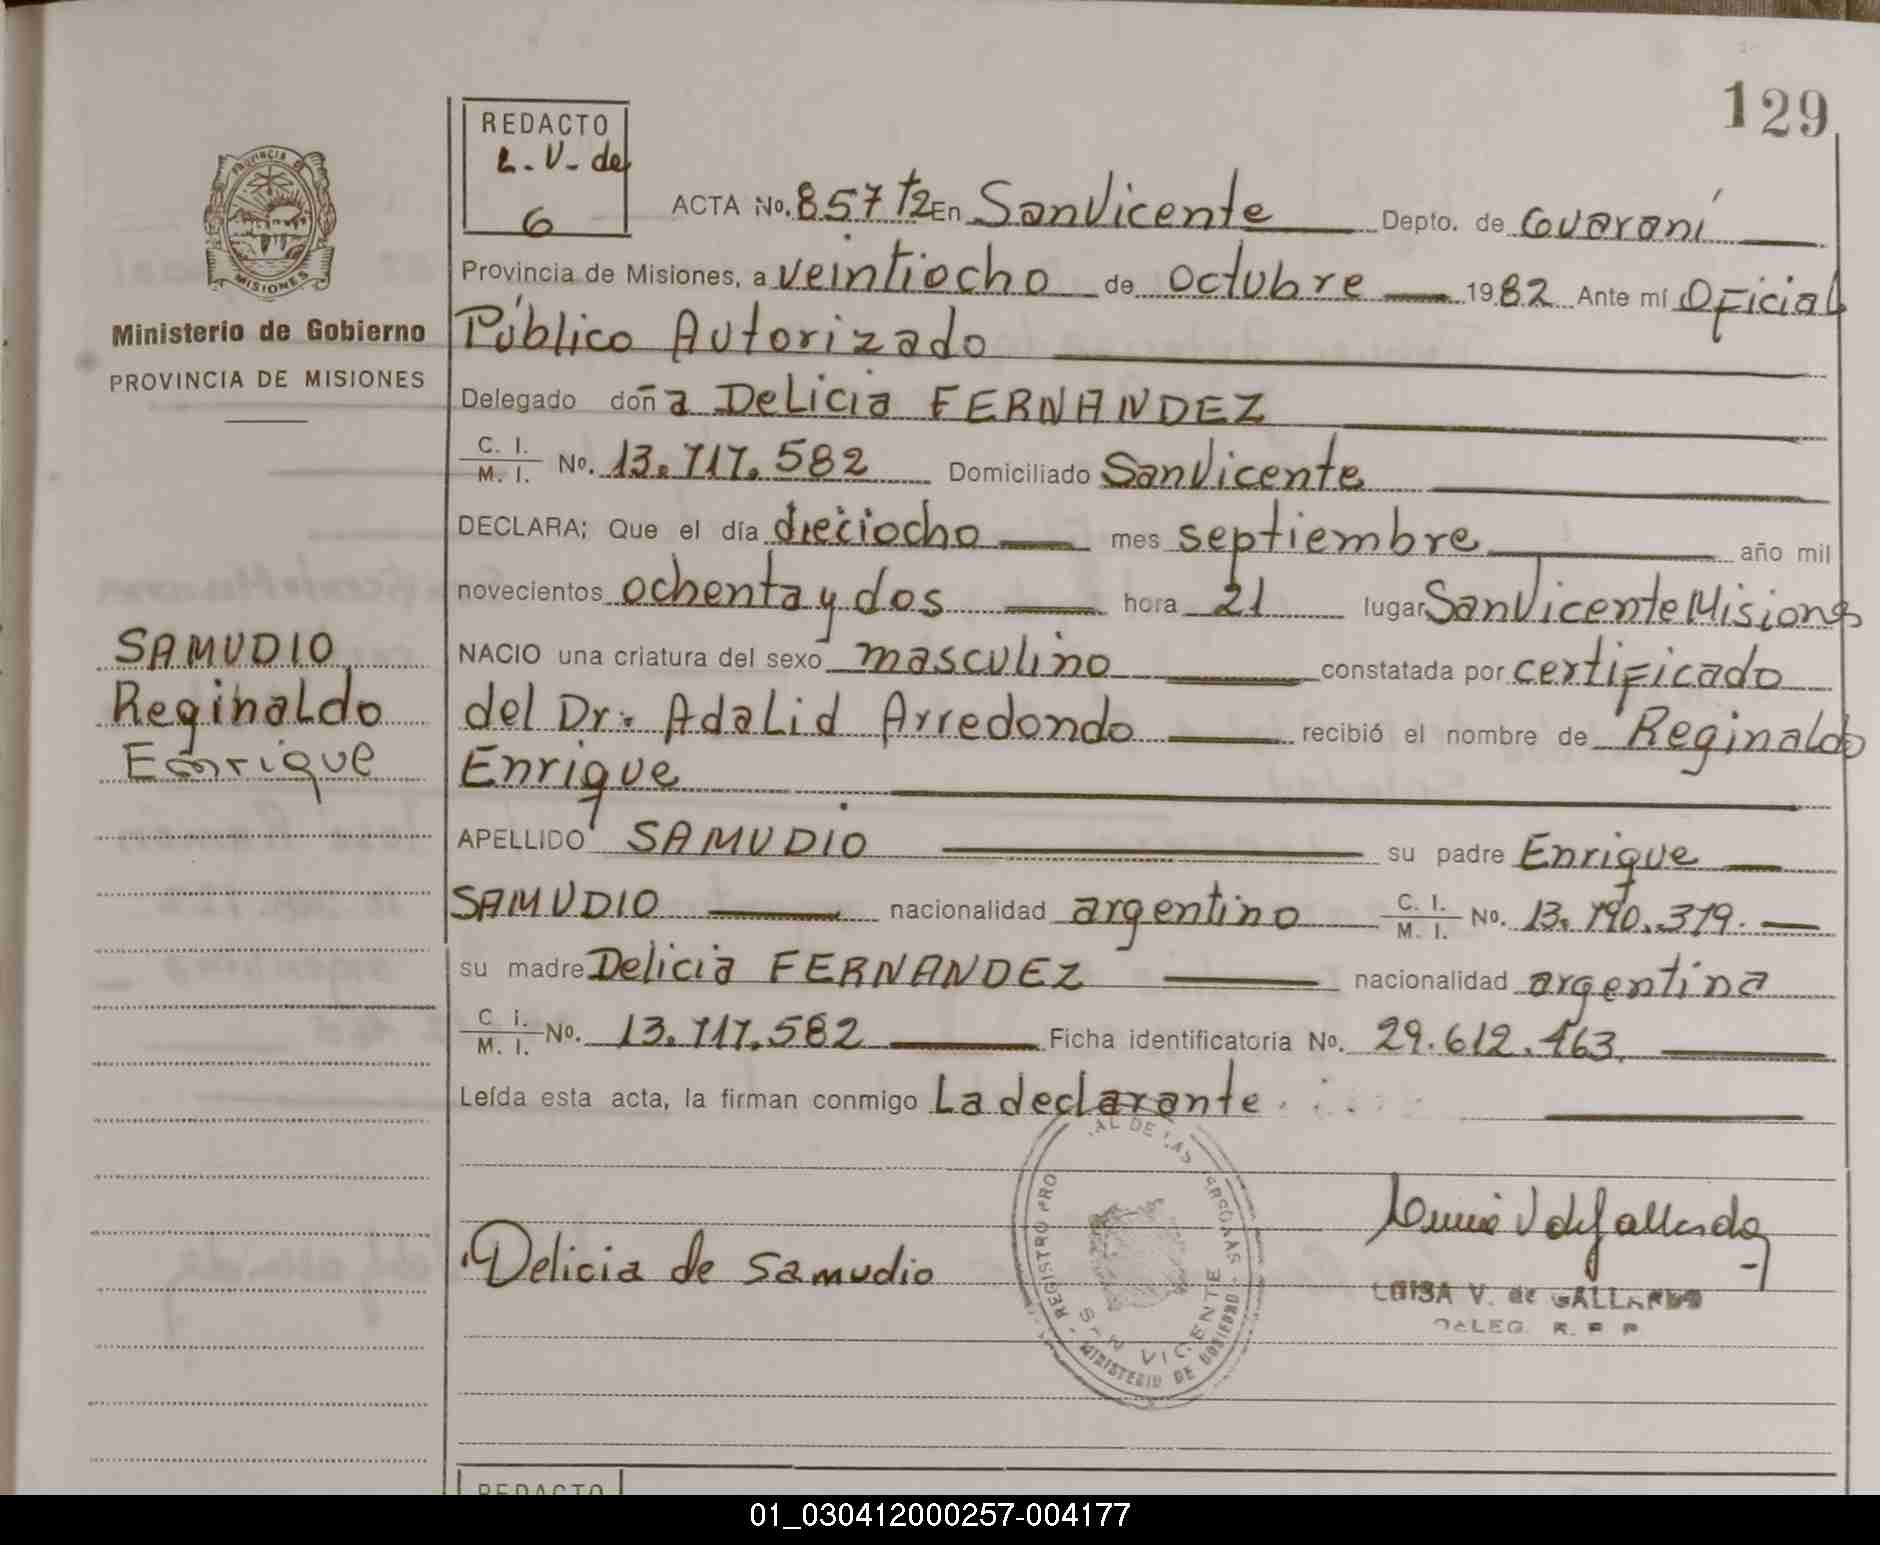 129
REDACTO
L. V. de
6
PROVINCIA DE
MISIONES
Ministerio de Gobierno
PROVINCIA DE MISIONES
ACTA No. 857 T2 En San Vicente Depto. de Guaraní
Provincia de Misiones, a veintiocho de octubre 1982 Ante mí Oficial
Público Autorizado
Delegado doña Delicia FERNANDEZ
C. I. / M. I. No. 13.717.582 Domiciliado San Vicente
DECLARA; Que el día dieciocho mes septiembre año mil
novecientos ochenta y dos hora 21 lugar San Vicente Misiones
NACIO una criatura del sexo masculino constatada por certificado
del Dr. Adalid Arredondo recibió el nombre de Reginaldo
Enrique
SAMUDIO
Reginaldo
Enrique
APELLIDO SAMUDIO su padre Enrique
SAMUDIO nacionalidad argentino C. I. / M. I. No. 13.790.379.
su madre Delicia FERNANDEZ nacionalidad argentina
C I. / M. I. No. 13.717.582 Ficha identificatoria No. 29.612.463.
Leída esta acta, la firman conmigo La declarante.
Delicia de Samudio
REGISTRO PRO AL DE LAS PERSONAS
SAN VICENTE
MINISTERIO DE GOBIERNO
V de Gallardo
LUISA V. de GALLARDO
DELEG. R. P. P.
REDACTO
01_030412000257-004177